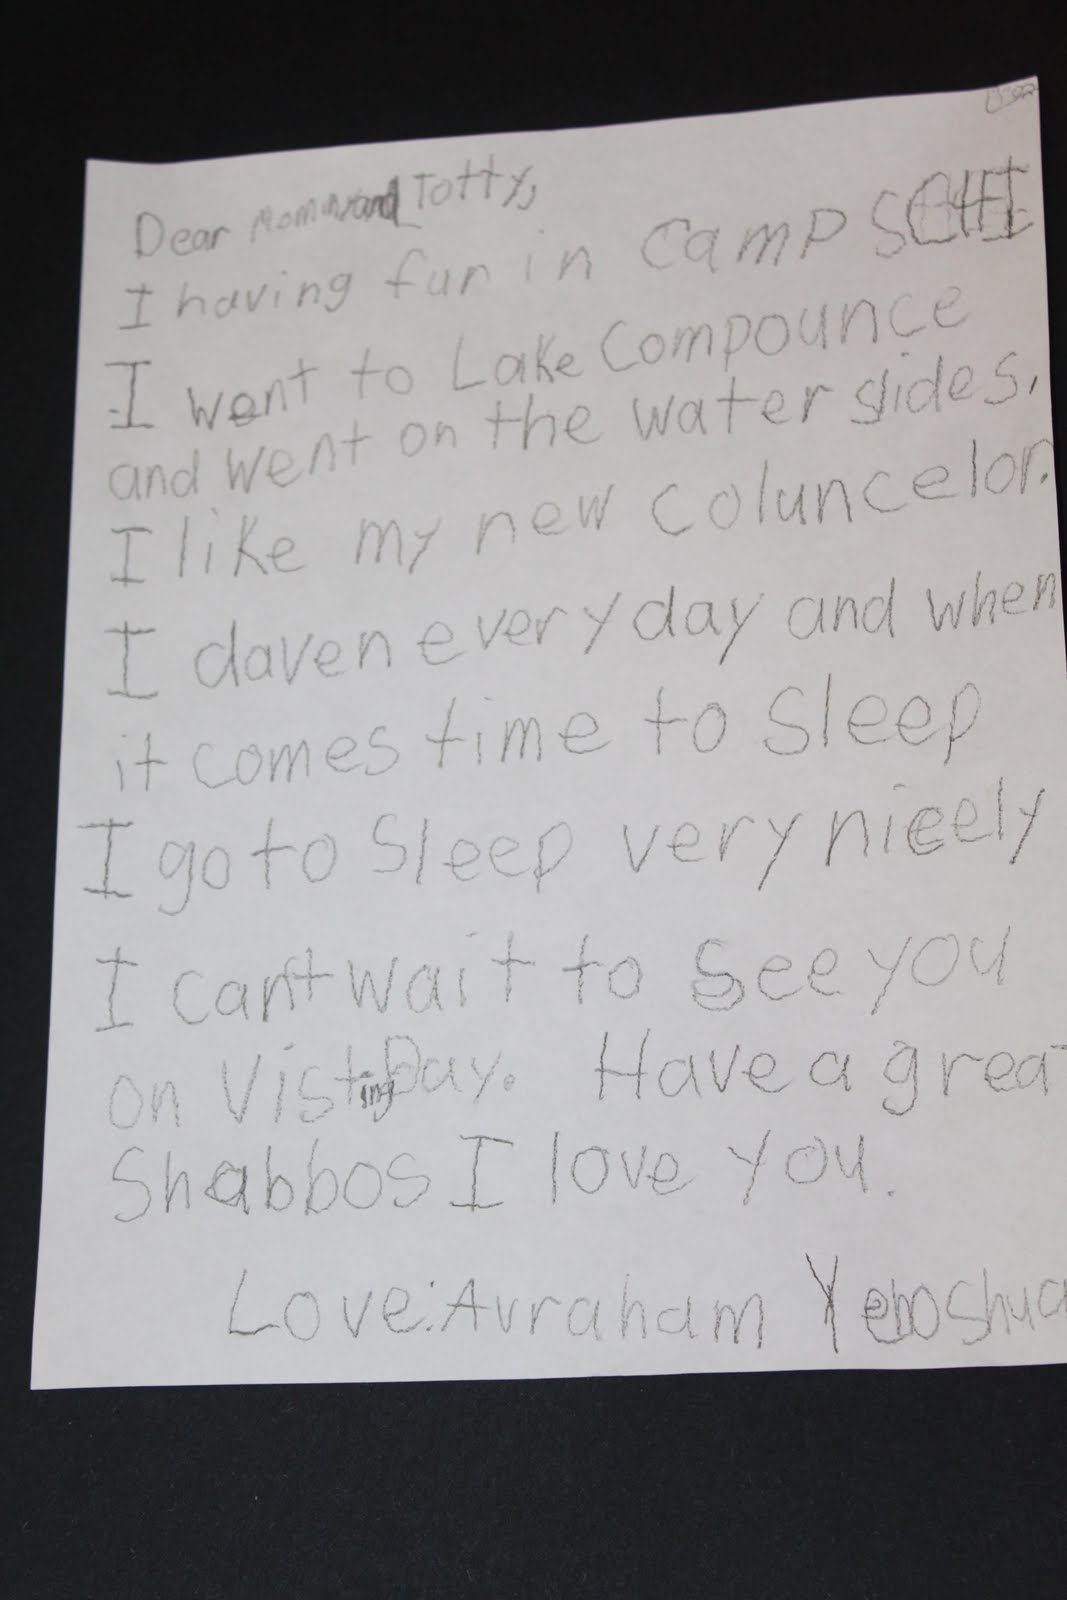 Dear Mommy and Totty,
I having fun in Camp SCHI
I went to Lake Compounce
and went on the water slides.
I like my new coluncelor.
I daven every day and when
it comes time to sleep
I go to sleep very nicely
I can't wait to see you
on Visting Day. Have a great
Shabbos I love you.
Love: Avraham Yehoshua